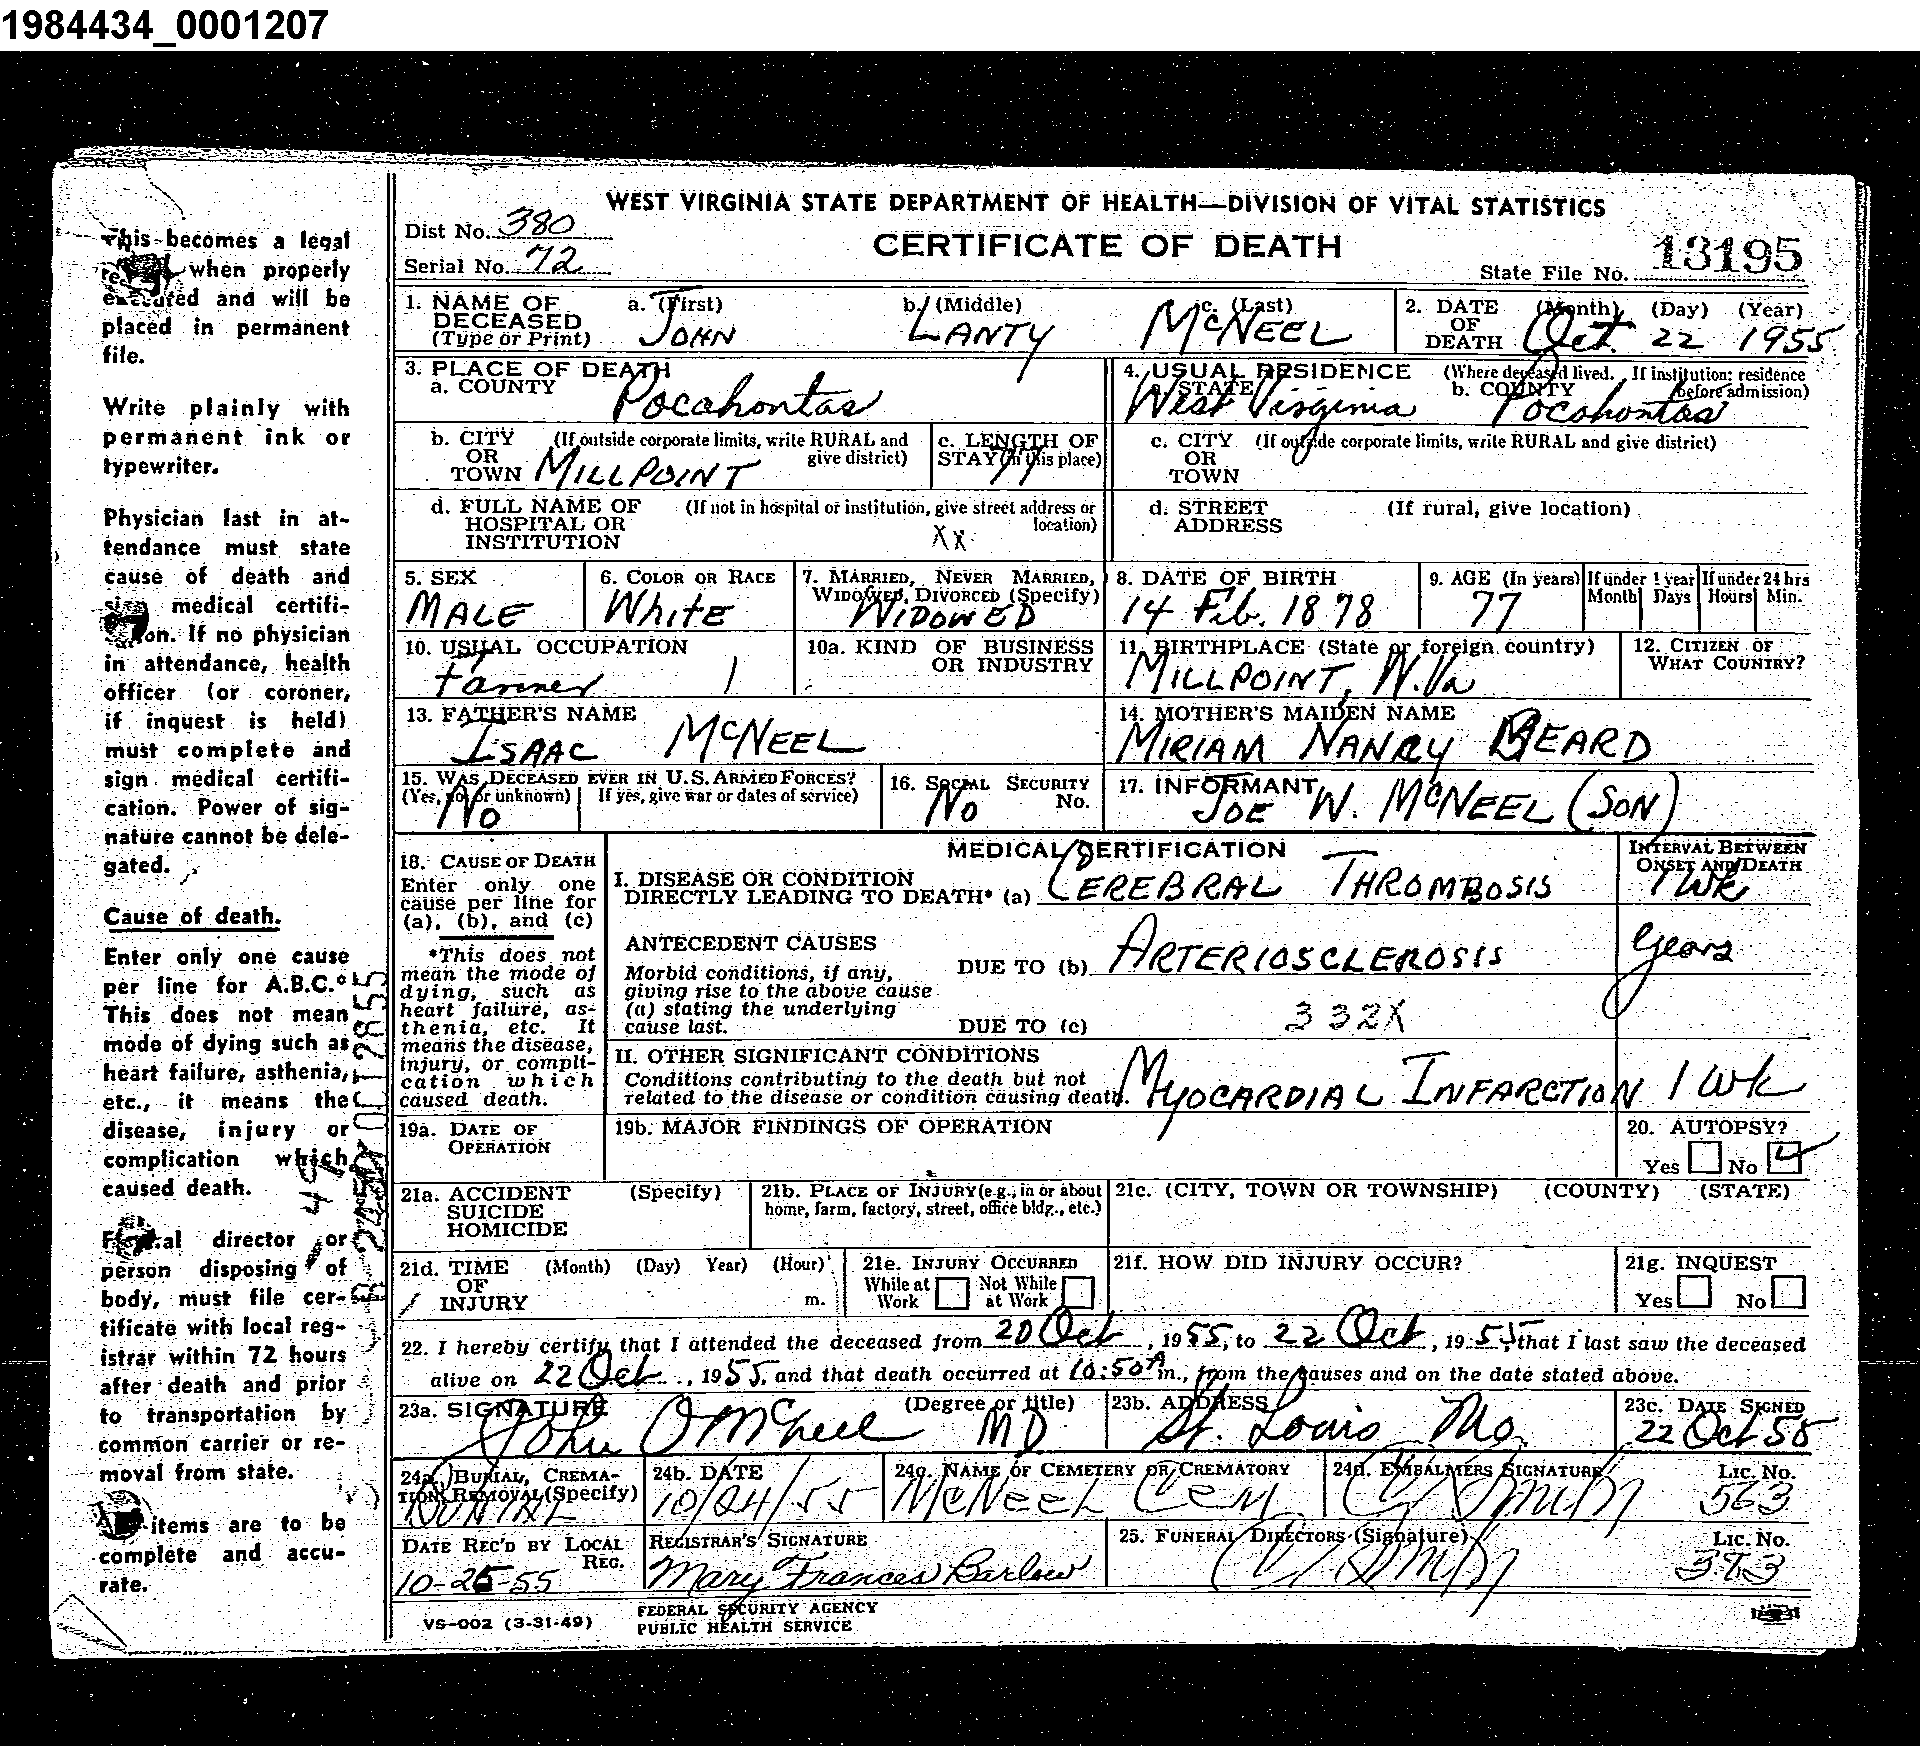 1984434_0001207
WEST VIRGINIA STATE DEPARTMENT OF HEALTH—DIVISION OF VITAL STATISTICS
Dist No. 380
CERTIFICATE OF DEATH
Serial No. 72
State File No. 13195
1. NAME OF DECEASED (Type or Print)
a. (First) JOHN
b. (Middle) LANTY
c. (Last) McNEEL
2. DATE OF DEATH (Month) (Day) (Year) Oct. 22 1955
3. PLACE OF DEATH
a. COUNTY Pocahontas
4. USUAL RESIDENCE (Where deceased lived. If institution: residence before admission)
a. STATE West Virginia
b. COUNTY Pocahontas
b. CITY OR TOWN (If outside corporate limits, write RURAL and give district) MILLPOINT
c. LENGTH OF STAY (in this place) 77
c. CITY OR TOWN (If outside corporate limits, write RURAL and give district)
d. FULL NAME OF HOSPITAL OR INSTITUTION (If not in hospital or institution, give street address or location) XX
d. STREET ADDRESS (If rural, give location)
5. SEX MALE
6. COLOR OR RACE White
7. MARRIED, NEVER MARRIED, WIDOWED, DIVORCED (Specify) WIDOWED
8. DATE OF BIRTH 14 Feb. 1878
9. AGE (In years) 77
If under 1 year Month Days
If under 24 hrs Hours Min.
10. USUAL OCCUPATION Farmer 1
10a. KIND OF BUSINESS OR INDUSTRY
11. BIRTHPLACE (State or foreign country) MILLPOINT, W.Va
12. CITIZEN OF WHAT COUNTRY?
13. FATHER'S NAME ISAAC McNEEL
14. MOTHER'S MAIDEN NAME MIRIAM NANCY BEARD
15. WAS DECEASED EVER IN U.S. ARMED FORCES? (Yes, no, or unknown) If yes, give war or dates of service) No
16. SOCIAL SECURITY No. No
17. INFORMANT JOE W. McNEEL (SON)
MEDICAL CERTIFICATION
INTERVAL BETWEEN ONSET AND DEATH
18. CAUSE OF DEATH
Enter only one cause per line for (a), (b), and (c)
*This does not mean the mode of dying, such as heart failure, asthenia, etc. It means the disease, injury, or complication which caused death.
I. DISEASE OR CONDITION DIRECTLY LEADING TO DEATH* (a) CEREBRAL THROMBOSIS 1 WK
ANTECEDENT CAUSES
Morbid conditions, if any, giving rise to the above cause (a) stating the underlying cause last.
DUE TO (b) ARTERIOSCLEROSIS years
DUE TO (c) 332X
II. OTHER SIGNIFICANT CONDITIONS
Conditions contributing to the death but not related to the disease or condition causing death. MYOCARDIAL INFARCTION 1 WK
19a. DATE OF OPERATION
19b. MAJOR FINDINGS OF OPERATION
20. AUTOPSY? Yes No
21a. ACCIDENT SUICIDE HOMICIDE (Specify)
21b. PLACE OF INJURY (e.g., in or about home, farm, factory, street, office bldg., etc.)
21c. (CITY, TOWN OR TOWNSHIP) (COUNTY) (STATE)
21d. TIME OF INJURY (Month) (Day) Year) (Hour) m.
21e. INJURY OCCURRED While at Work Not While at Work
21f. HOW DID INJURY OCCUR?
21g. INQUEST Yes No
22. I hereby certify that I attended the deceased from 20 Oct, 1955, to 22 Oct, 1955, that I last saw the deceased
alive on 22 Oct, 1955, and that death occurred at 10:50 A m., from the causes and on the date stated above.
23a. SIGNATURE (Degree or title) John O McNeel MD
23b. ADDRESS St. Louis Mo.
23c. DATE SIGNED 22 Oct 55
24a. BURIAL, CREMATION, REMOVAL (Specify) BURIAL
24b. DATE 10/24/55
24c. NAME OF CEMETERY OR CREMATORY McNeel Cem
24d. EMBALMERS SIGNATURE Lic. No. 563
DATE REC'D BY LOCAL REG. 10-25-55
REGISTRAR'S SIGNATURE Mary Frances Barlow
25. FUNERAL DIRECTORS (Signature) Lic. No. 383
VS-002 (3-31-49)
FEDERAL SECURITY AGENCY
PUBLIC HEALTH SERVICE
This becomes a legal
when properly
executed and will be
placed in permanent
file.
Write plainly with
permanent ink or
typewriter.
Physician last in at-
tendance must state
cause of death and
sign medical certifi-
cation. If no physician
in attendance, health
officer (or coroner,
if inquest is held)
must complete and
sign medical certifi-
cation. Power of sig-
nature cannot be dele-
gated.
Cause of death.
Enter only one cause
per line for A.B.C.
This does not mean
mode of dying such as
heart failure, asthenia,
etc., it means the
disease, injury or
complication which
caused death.
Funeral director or
person disposing of
body, must file cer-
tificate with local reg-
istrar within 72 hours
after death and prior
to transportation by
common carrier or re-
moval from state.
items are to be
complete and accu-
rate.